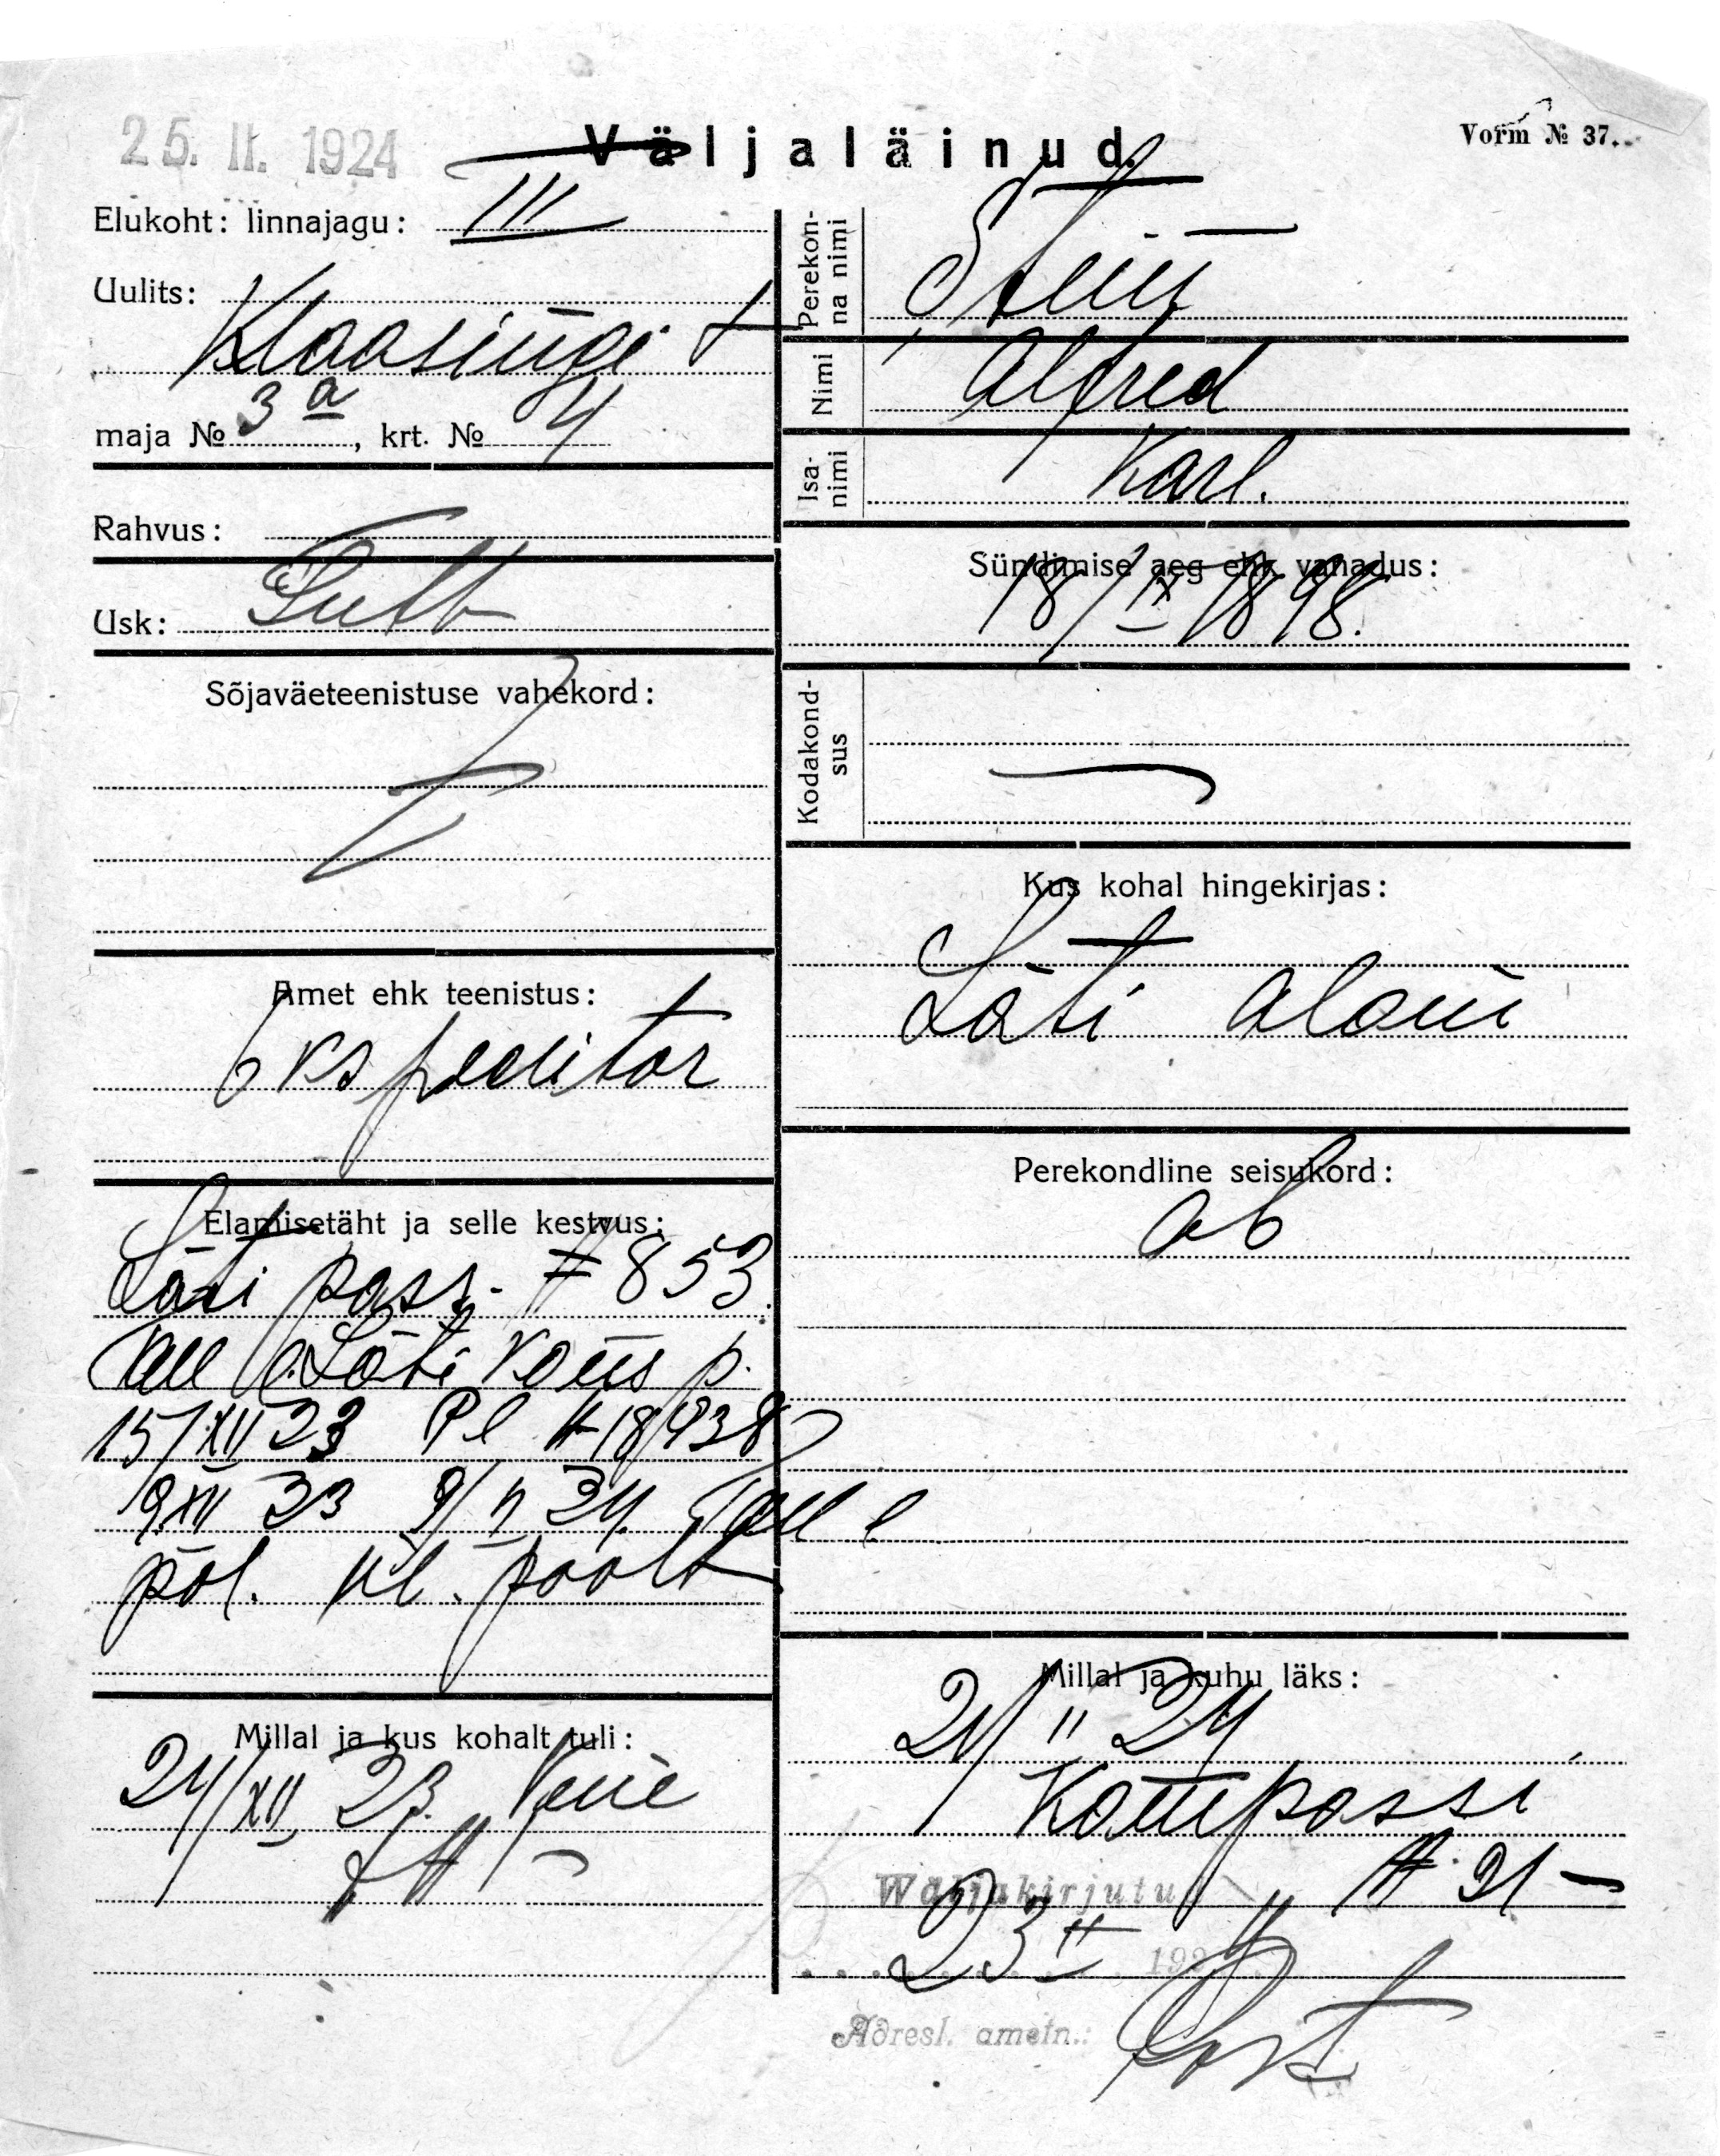 25. II. 1924
Väljaläinud.
Vorm № 37.
Elukoht: linnajagu: III
Uulits:
Klaasingi t
maja № 3 a, krt. № 4
Rahvus:
Usk: Lutt
Sõjaväeteenistuse vahekord:
Amet ehk teenistus:
Ekspeditor
Elamisetäht ja selle kestvus:
Läti pass. # 853
Läti kons p.
15/XII 23 Pl # 18/938
9.XII 23 9/II 24. Tall l
pol. ül. poolt
Millal ja kus kohalt tuli:
24/XII 23. Vene
Perekonna nimi
Stein
Nimi Alfred
Isanimi Karl.
Sündimise aeg ehk vanadus:
18/IX 1898.
Kodakondsus
Kus kohal hingekirjas:
Läti alam
Perekondline seisukord:
ab
Millal ja kuhu läks:
21/II 24
Kompassi
# 21
Wäljakirjutud
23 II 192
Adresl. ametn.: